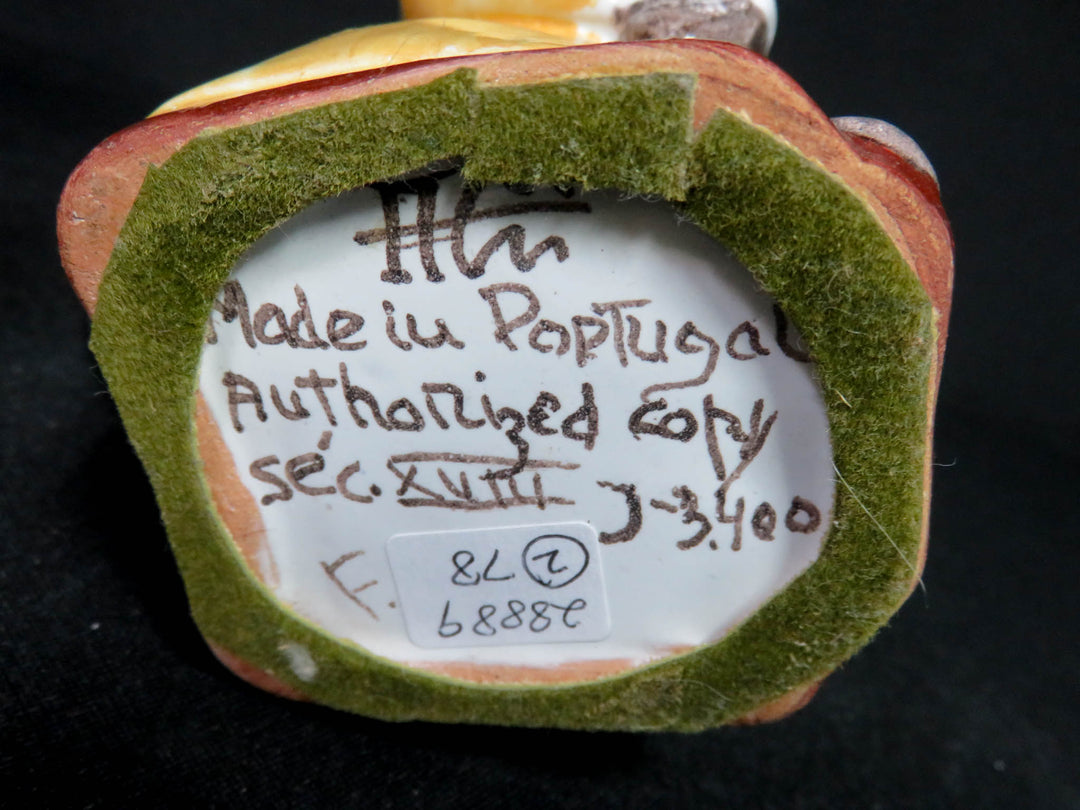 Made in Portugal
Authorized copy
séc. XVIII J-3.400
F.
28889
② 78